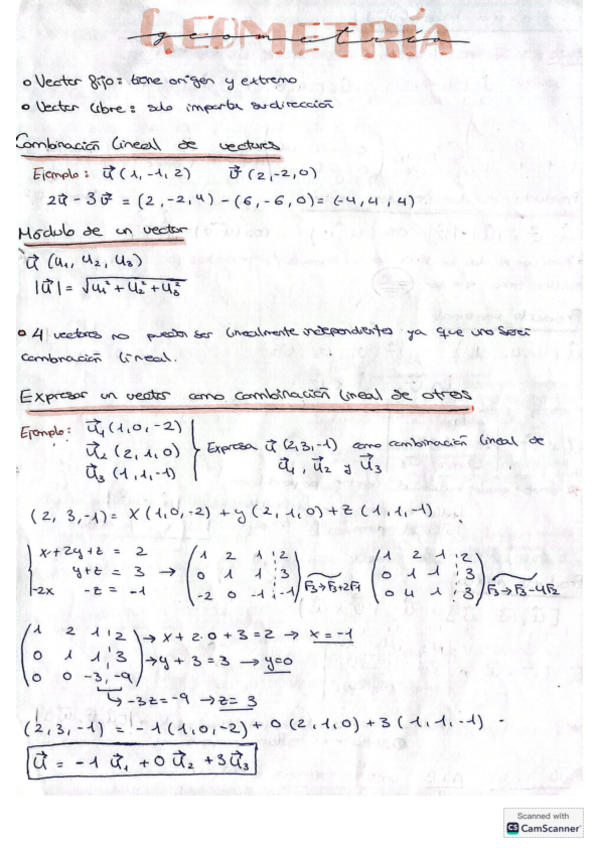 GEOMETRÍA
geometría
o Vector fijo: tiene origen y extremo
o Vector libre: solo importa su dirección
Combinación lineal de vectores
Ejemplo: u⃗ (1, -1, 2) v⃗ (2, -2, 0)
2u⃗ - 3v⃗ = (2, -2, 4) - (6, -6, 0) = (-4, 4, 4)
Módulo de un vector
u⃗ (u₁, u₂, u₃)
|u⃗| = √u₁² + u₂² + u₃²
o 4 vectores no pueden ser linealmente independientes ya que uno será
combinación lineal.
Expresar un vector como combinación lineal de otros
Ejemplo: u⃗₁ (1, 0, -2)
u⃗₂ (2, 1, 0)
u⃗₃ (1, 1, -1)
Expresa u⃗ (2, 3, -1) como combinación lineal de
u⃗₁, u⃗₂ y u⃗₃
(2, 3, -1) = x (1, 0, -2) + y (2, 1, 0) + z (1, 1, -1)
x + 2y + z = 2
y + z = 3 →
-2x - z = -1
1 2 1 2
0 1 1 3
-2 0 -1 -1
F3→F3+2F1
1 2 1 2
0 1 1 3
0 4 1 3
F3→F3-4F2
1 2 1 2 → x + 2·0 + 3 = 2 → x = -1
0 1 1 3 → y + 3 = 3 → y = 0
0 0 -3 -9
→ -3z = -9 → z = 3
(2, 3, -1) = -1 (1, 0, -2) + 0 (2, 1, 0) + 3 (1, 1, -1)
u⃗ = -1 u⃗₁ + 0 u⃗₂ + 3 u⃗₃
Scanned with
CS CamScanner